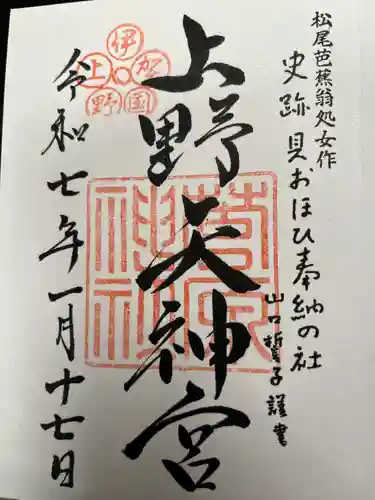 松尾芭蕉翁処女作
史跡 貝おほひ奉納の社
山口誓子謹書
上野天神宮
伊賀国上野
菅原
神社
令和七年一月十七日